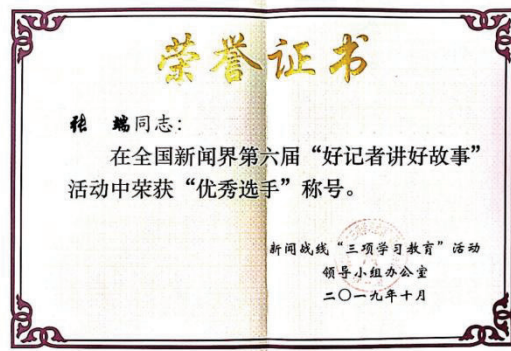 荣誉证书
张 端同志：
在全国新闻界第六届“好记者讲好故事”
活动中荣获“优秀选手”称号。
新闻战线“三项学习教育”活动
领导小组办公室
二〇一九年十月